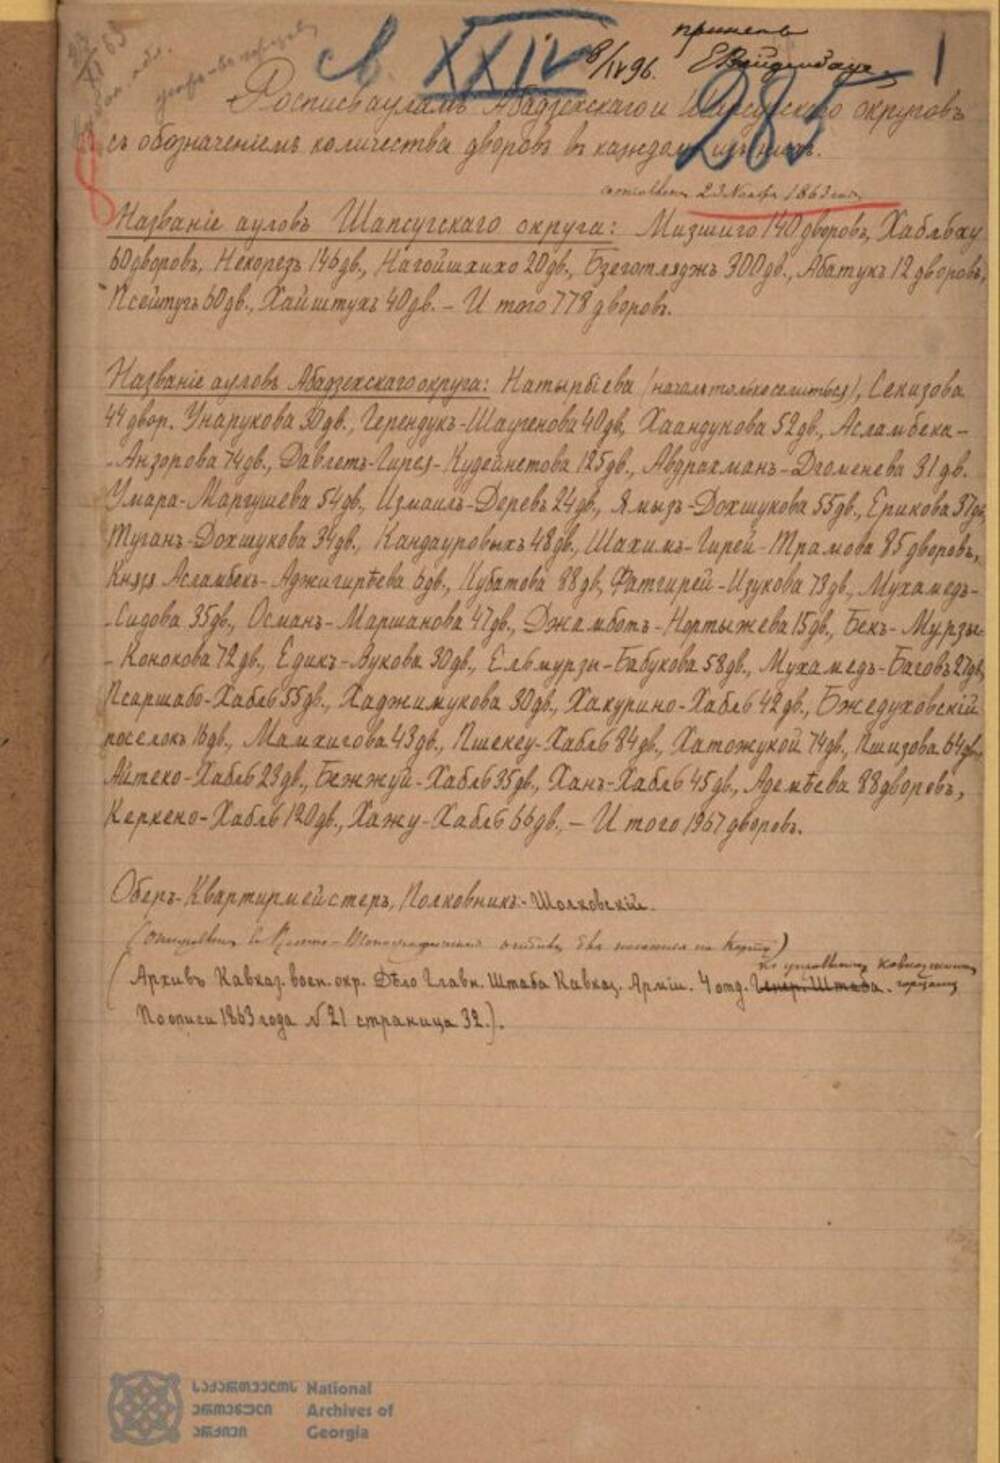 23
XI 63
л. XXIV
8/IV 96. принелъ
ЕВейденбаумъ
1
283
8
Роспись ауламъ Абадзехскаго и Шапсугскаго округовъ
съ обозначеніемъ количества дворовъ въ каждомъ изъ нихъ.
составлен. 23 Ноября 1863 года
Названіе ауловъ Шапсугскаго округа: Мизшиго 140 дворовъ, Хабльбху
60 дворовъ, Некорезъ 146 дв., Нагойшхихо 20 дв., Бзеготляджъ 300 дв., Абатукъ 12 дворовъ,
Псейтугъ 60 дв., Хайштукъ 40 дв. – И того 778 дворовъ.
Названіе ауловъ Абадзехскаго округа: Натырбіева (начал. только селиться), Секизова
44 двор. Унарукова 30 дв., Герендукъ-Шаугенова 40 дв, Хаандукова 52 дв., Асламбека-
-Анзорова 74 дв., Давлетъ-Гирея-Кудейнетова 125 дв., Авдрахманъ-Дгоменева 31 дв.
Умара-Маргушева 54 дв., Измаилъ-Доревъ 24 дв., Ямызъ-Дохшукова 55 дв., Ерикова 37 дв.,
Туганъ-Дохшукова 34 дв., Кандауровыхъ 48 дв., Шахимъ-Гирей-Трамова 85 дворовъ,
Князя Асламбекъ-Аджигирѣева 6 дв., Кубатова 88 дв, Фатгирей-Изукова 73 дв., Мухамедъ-
-Сидова 35 дв., Османъ-Маршанова 47 дв., Джамботъ-Нортыжева 15 дв., Бекъ-Мурзы-
-Конокова 72 дв., Едикъ-Вукова 30 дв., Ельмурзы-Бабукова 58 дв., Мухамедъ-Баговъ 27 дв,
Псаршабо-Хабль 55 дв., Хаджимукова 30 дв., Хакурино-Хабль 42 дв., Бжедуховскій
поселокъ 16 дв., Мамхигова 43 дв., Пшекеу-Хабль 84 дв., Хатожукой 74 дв., Пшизова 64 дв.,
Айтеко-Хабль 23 дв., Бежжуй-Хабль 35 дв., Ханъ-Хабль 45 дв., Адемѣева 88 дворовъ,
Керкено-Хабль 120 дв., Хажу-Хабль 66 дв., – И того 1967 дворовъ.
Оберъ-Квартирмейстеръ, Полковникъ-Шолковскій.
по управленію Кавказскими
(Архивъ Кавказ. воен. окр. Дѣло Главн. Штаба Кавказ. Арміи. 4 отд. Генер. Штаба. горцами
По описи 1863 года № 21 страница 32.).
საქართველოს National
ეროვნული Archives of
არქივი Georgia